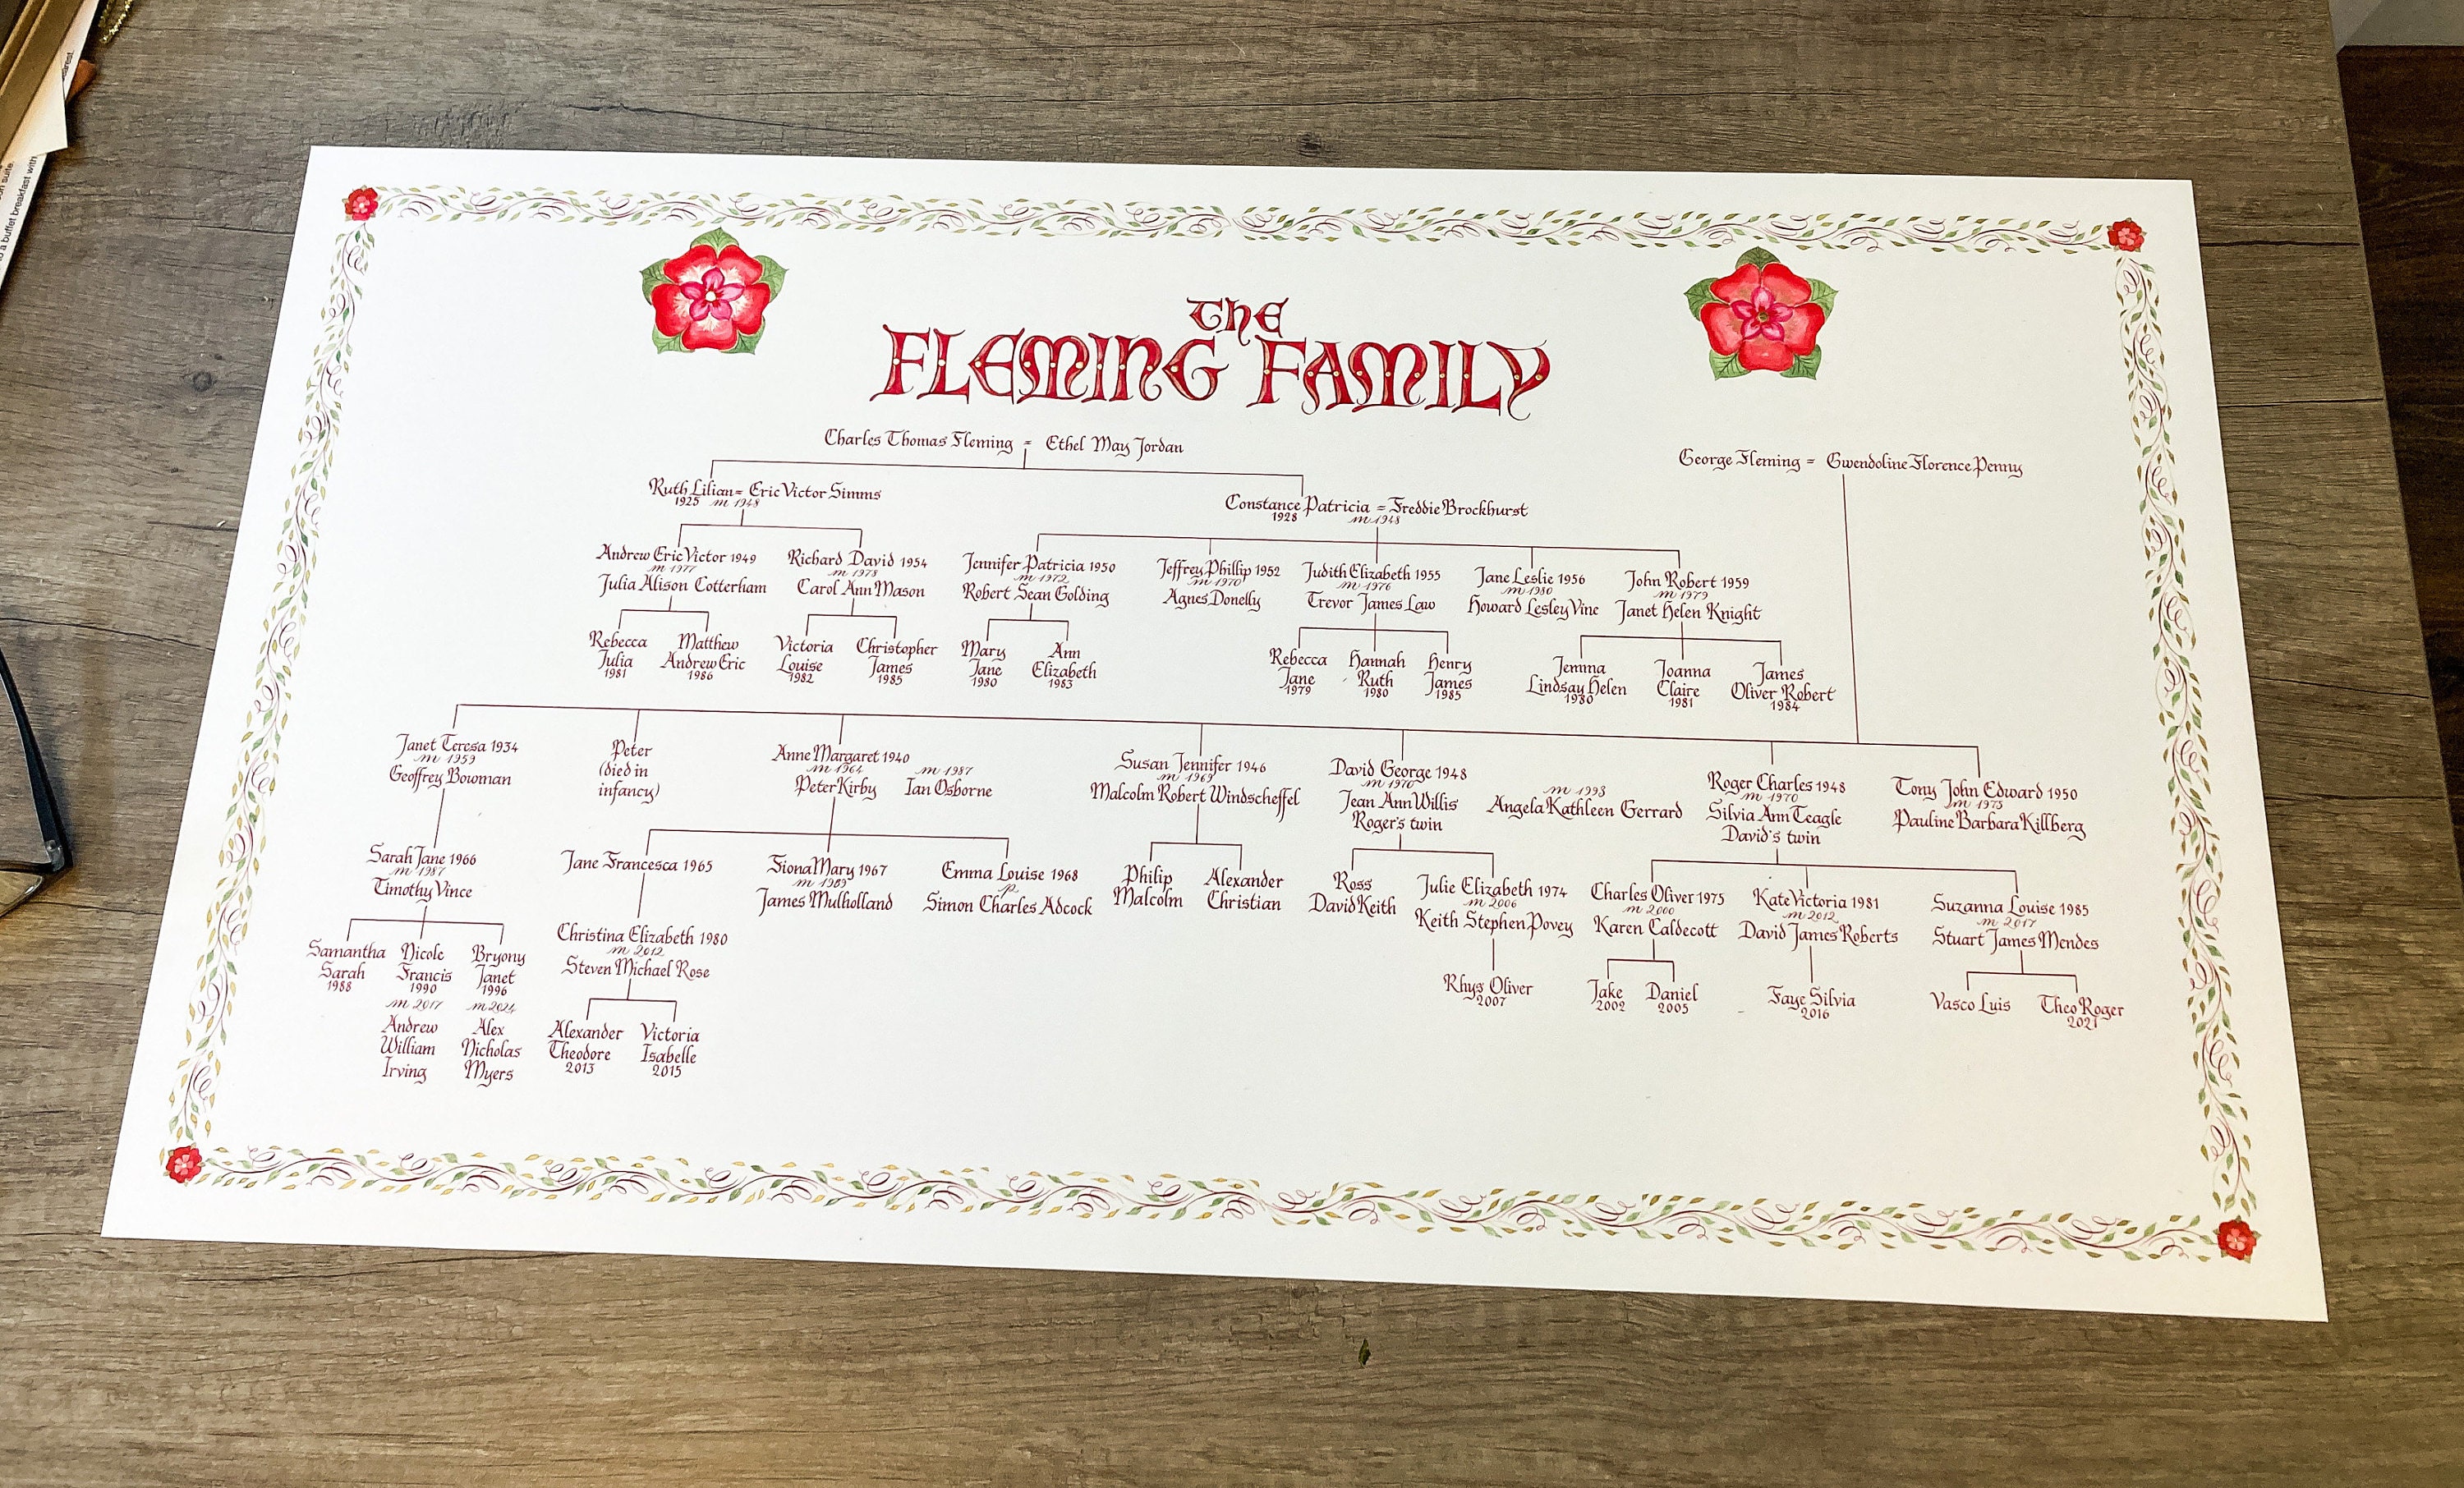 THE
FLEMING FAMILY
Charles Thomas Fleming = Ethel May Jordan
George Fleming = Gwendoline Florence Penny
Ruth Lilian = Eric Victor Simms
1925 m 1948
Constance Patricia = Freddie Brockhurst
1928 m 1948
Andrew Eric Victor 1949
m 1977
Julia Alison Cotterham
Richard David 1954
m 1978
Carol Ann Mason
Jennifer Patricia 1950
m 1972
Robert Sean Golding
Jeffrey Phillip 1952
m 1970
Agnes Donelly
Judith Elizabeth 1955
m 1976
Trevor James Law
Jane Leslie 1956
m 1980
Howard Lesley Vine
John Robert 1959
m 1979
Janet Helen Knight
Rebecca
Julia
1981
Matthew
Andrew Eric
1986
Victoria
Louise
1982
Christopher
James
1985
Mary
Jane
1980
Ann
Elizabeth
1983
Rebecca
Jane
1979
Hannah
Ruth
1980
Henry
James
1985
Jemma
Lindsay Helen
1980
Joanna
Claire
1981
James
Oliver Robert
1984
Janet Teresa 1934
m 1959
Geoffrey Bowman
Peter
(died in
infancy)
Anne Margaret 1940
m 1964
Peter Kirby
m 1987
Ian Osborne
Susan Jennifer 1946
m 1969
Malcolm Robert Windscheffel
David George 1948
m 1970
Jean Ann Willis
Roger's twin
m 1993
Angela Kathleen Gerrard
Roger Charles 1948
m 1970
Silvia Ann Teagle
David's twin
Tony John Edward 1950
m 1973
Pauline Barbara Killberg
Sarah Jane 1966
m 1987
Timothy Vince
Jane Francesca 1965
Fiona Mary 1967
m 1989
James Mulholland
Emma Louise 1968
p
Simon Charles Adcock
Philip
Malcolm
Alexander
Christian
Ross
David Keith
Julie Elizabeth 1974
m 2006
Keith Stephen Povey
Charles Oliver 1975
m 2000
Karen Caldecott
Kate Victoria 1981
m 2012
David James Roberts
Suzanna Louise 1985
m 2017
Stuart James Mendes
Samantha
Sarah
1988
Nicole
Francis
1990
m 2017
Andrew
William
Irving
Bryony
Janet
1996
m 2024
Alex
Nicholas
Myers
Christina Elizabeth 1980
m 2012
Steven Michael Rose
Alexander
Theodore
2013
Victoria
Isabelle
2015
Rhys Oliver
2007
Jake
2002
Daniel
2005
Faye Silvia
2016
Vasco Luis
Theo Roger
2021
to a buffet breakfast with